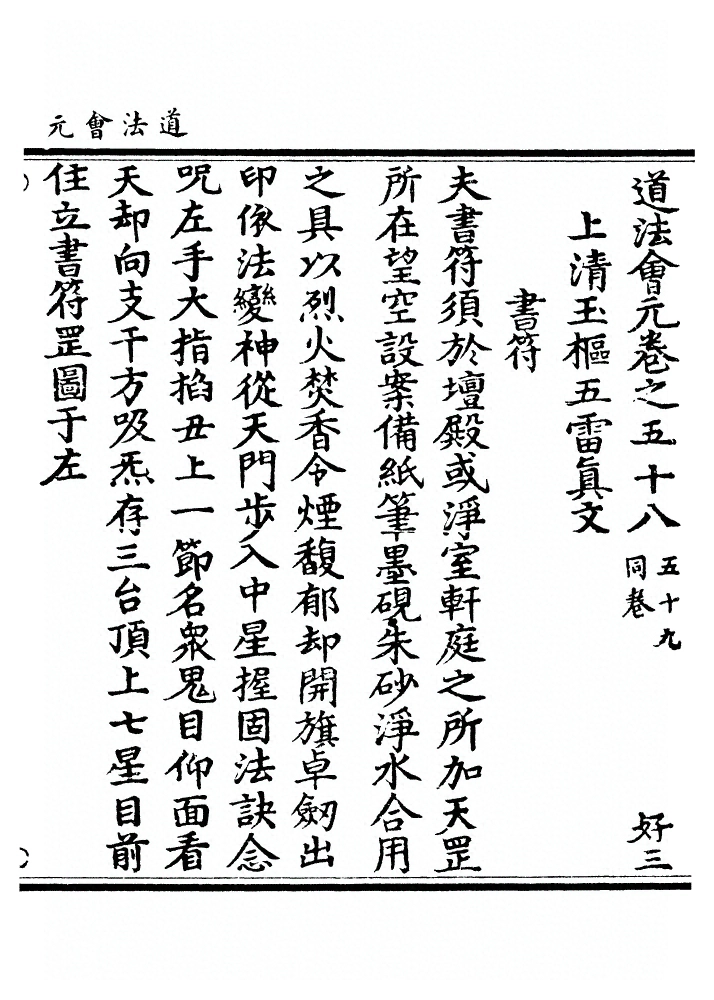 道法會元
道法會元卷之五十八 五十九同卷 好三
上清玉樞五雷眞文
書符
夫書符須於壇殿或淨室軒庭之所加天罡
所在望空設案備紙筆墨硯朱砂淨水合用
之具以烈火焚香令煙馥郁却開旗卓劒出
印依法變神從天門步入中星握固法訣念
呪左手大指掐丑上一節名衆鬼目仰面看
天却向支干方吸炁存三台頂上七星目前
住立書符罡圖于左